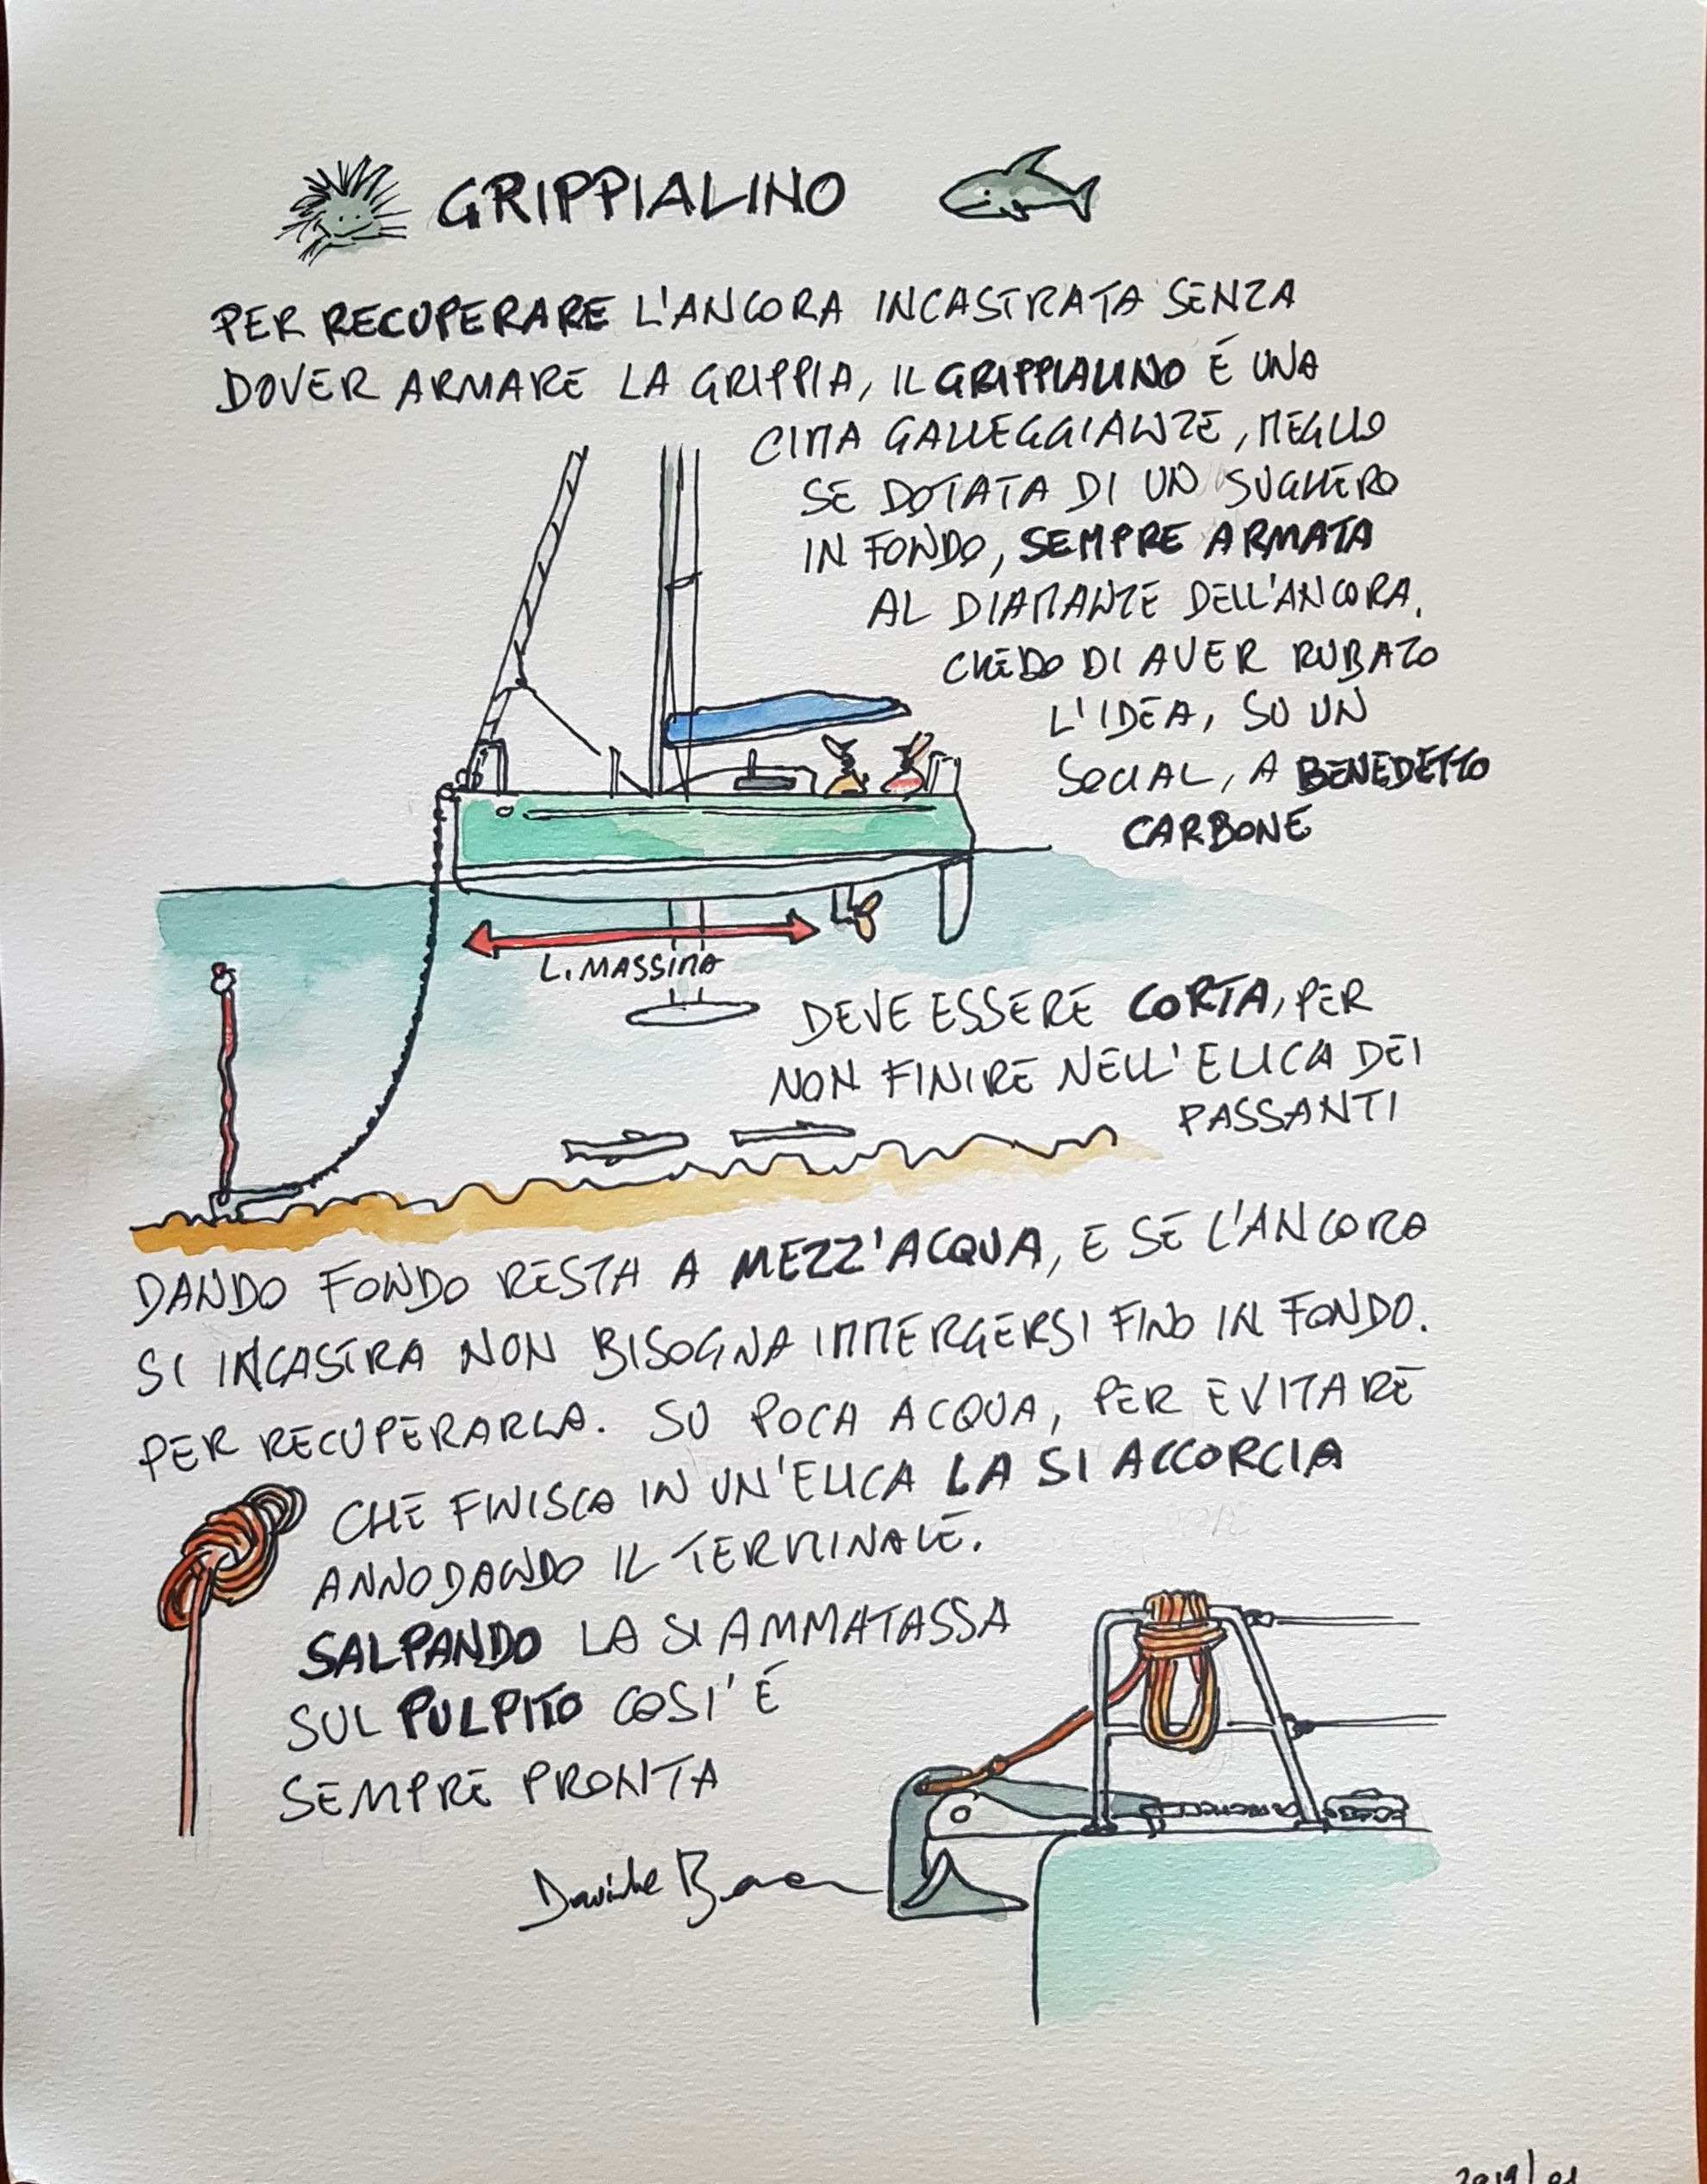 GRIPPIALINO
PER RECUPERARE L'ANCORA INCASTRATA SENZA
DOVER ARMARE LA GRIPPIA, IL GRIPPIALINO É UNA
CIMA GALLEGGIANTE, MEGLIO
SE DOTATA DI UN SUGHERO
IN FONDO, SEMPRE ARMATA
AL DIAMANTE DELL'ANCORA.
CREDO DI AVER RUBATO
L'IDEA, SU UN
SOCIAL, A BENEDETTO
CARBONE
L. MASSIMA
DEVE ESSERE CORTA, PER
NON FINIRE NELL'ELICA DEI
PASSANTI
DANDO FONDO RESTA A MEZZ'ACQUA, E SE L'ANCORA
SI INCASTRA NON BISOGNA IMMERGERSI FINO IN FONDO.
PER RECUPERARLA. SU POCA ACQUA, PER EVITARE
CHE FINISCA IN UN'ELICA LA SI ACCORCIA
ANNODANDO IL TERMINALE.
SALPANDO LA SI AMMATASSA
SUL PULPITO COSI' É
SEMPRE PRONTA
Davide
2019/01